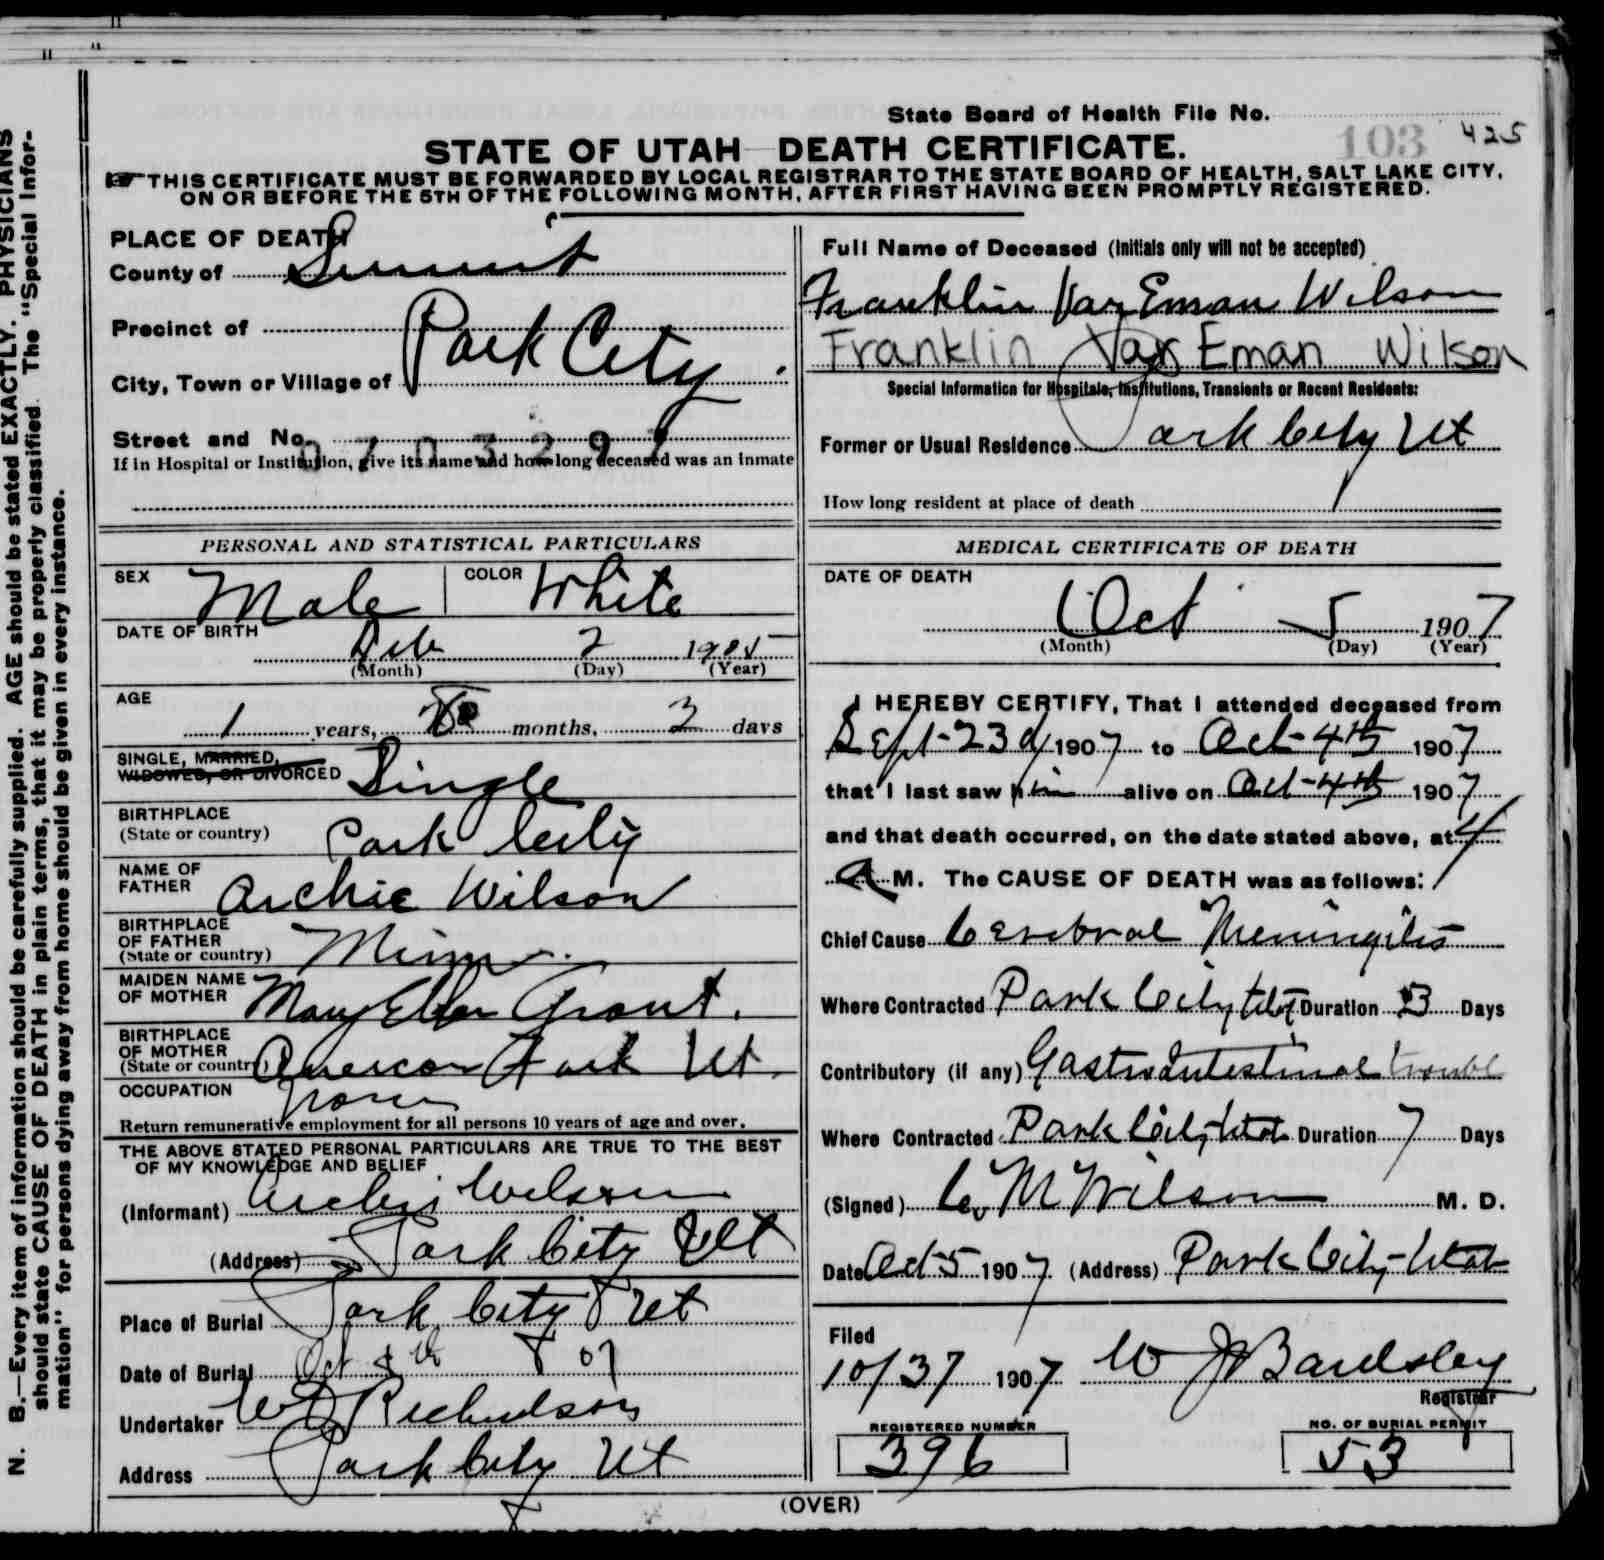 State Board of Health File No.
103 425
STATE OF UTAH DEATH CERTIFICATE.
THIS CERTIFICATE MUST BE FORWARDED BY LOCAL REGISTRAR TO THE STATE BOARD OF HEALTH, SALT LAKE CITY,
ON OR BEFORE THE 5TH OF THE FOLLOWING MONTH, AFTER FIRST HAVING BEEN PROMPTLY REGISTERED.
PLACE OF DEATH
County of Summit
Precinct of
City, Town or Village of Park City
Street and No.
0703297
If in Hospital or Institution, give its name and how long deceased was an inmate
PERSONAL AND STATISTICAL PARTICULARS
SEX Male COLOR White
DATE OF BIRTH
Feb 2 1905
(Month) (Day) (Year)
AGE
1 years, 8 months, days
SINGLE, MARRIED,
WIDOWED, OR DIVORCED Single
BIRTHPLACE
(State or country) Park City
NAME OF
FATHER Archie Wilson
BIRTHPLACE
OF FATHER
(State or country) Minn.
MAIDEN NAME
OF MOTHER Mary Ellen Grant.
BIRTHPLACE
OF MOTHER
(State or country) American Fork Ut.
OCCUPATION None
Return remunerative employment for all persons 10 years of age and over.
THE ABOVE STATED PERSONAL PARTICULARS ARE TRUE TO THE BEST
OF MY KNOWLEDGE AND BELIEF
(Informant) Archie Wilson
(Address) Park City Ut
Place of Burial Park City Ut
Date of Burial Oct th 07
Undertaker Richardson
Address Park City Ut
Full Name of Deceased (Initials only will not be accepted)
Franklin Van Eman Wilson
Franklin Van Eman Wilson
Special Information for Hospitals, Institutions, Transients or Recent Residents:
Former or Usual Residence Park City Ut
How long resident at place of death
MEDICAL CERTIFICATE OF DEATH
DATE OF DEATH
Oct 5 1907
(Month) (Day) (Year)
I HEREBY CERTIFY, That I attended deceased from
Sept-23d 1907 to Oct-4th 1907
that I last saw him alive on Oct-4th 1907
and that death occurred, on the date stated above, at 4
A M. The CAUSE OF DEATH was as follows:
Chief Cause Cerebral Meningitis
Where Contracted Park City Utah Duration 3 Days
Contributory (if any) Gastro Intestinal trouble
Where Contracted Park City-Utah Duration 7 Days
(Signed) C. M Wilson M. D.
Date Oct 5 1907 (Address) Park City-Utah
Filed
10/37 1907 W J Bardsley
Registrar
REGISTERED NUMBER
396
NO. OF BURIAL PERMIT
53
(OVER)
N. B.—Every item of information should be carefully supplied. AGE should be stated EXACTLY. PHYSICIANS
should state CAUSE OF DEATH in plain terms, that it may be properly classified. The "Special Infor-
mation" for persons dying away from home should be given in every instance.